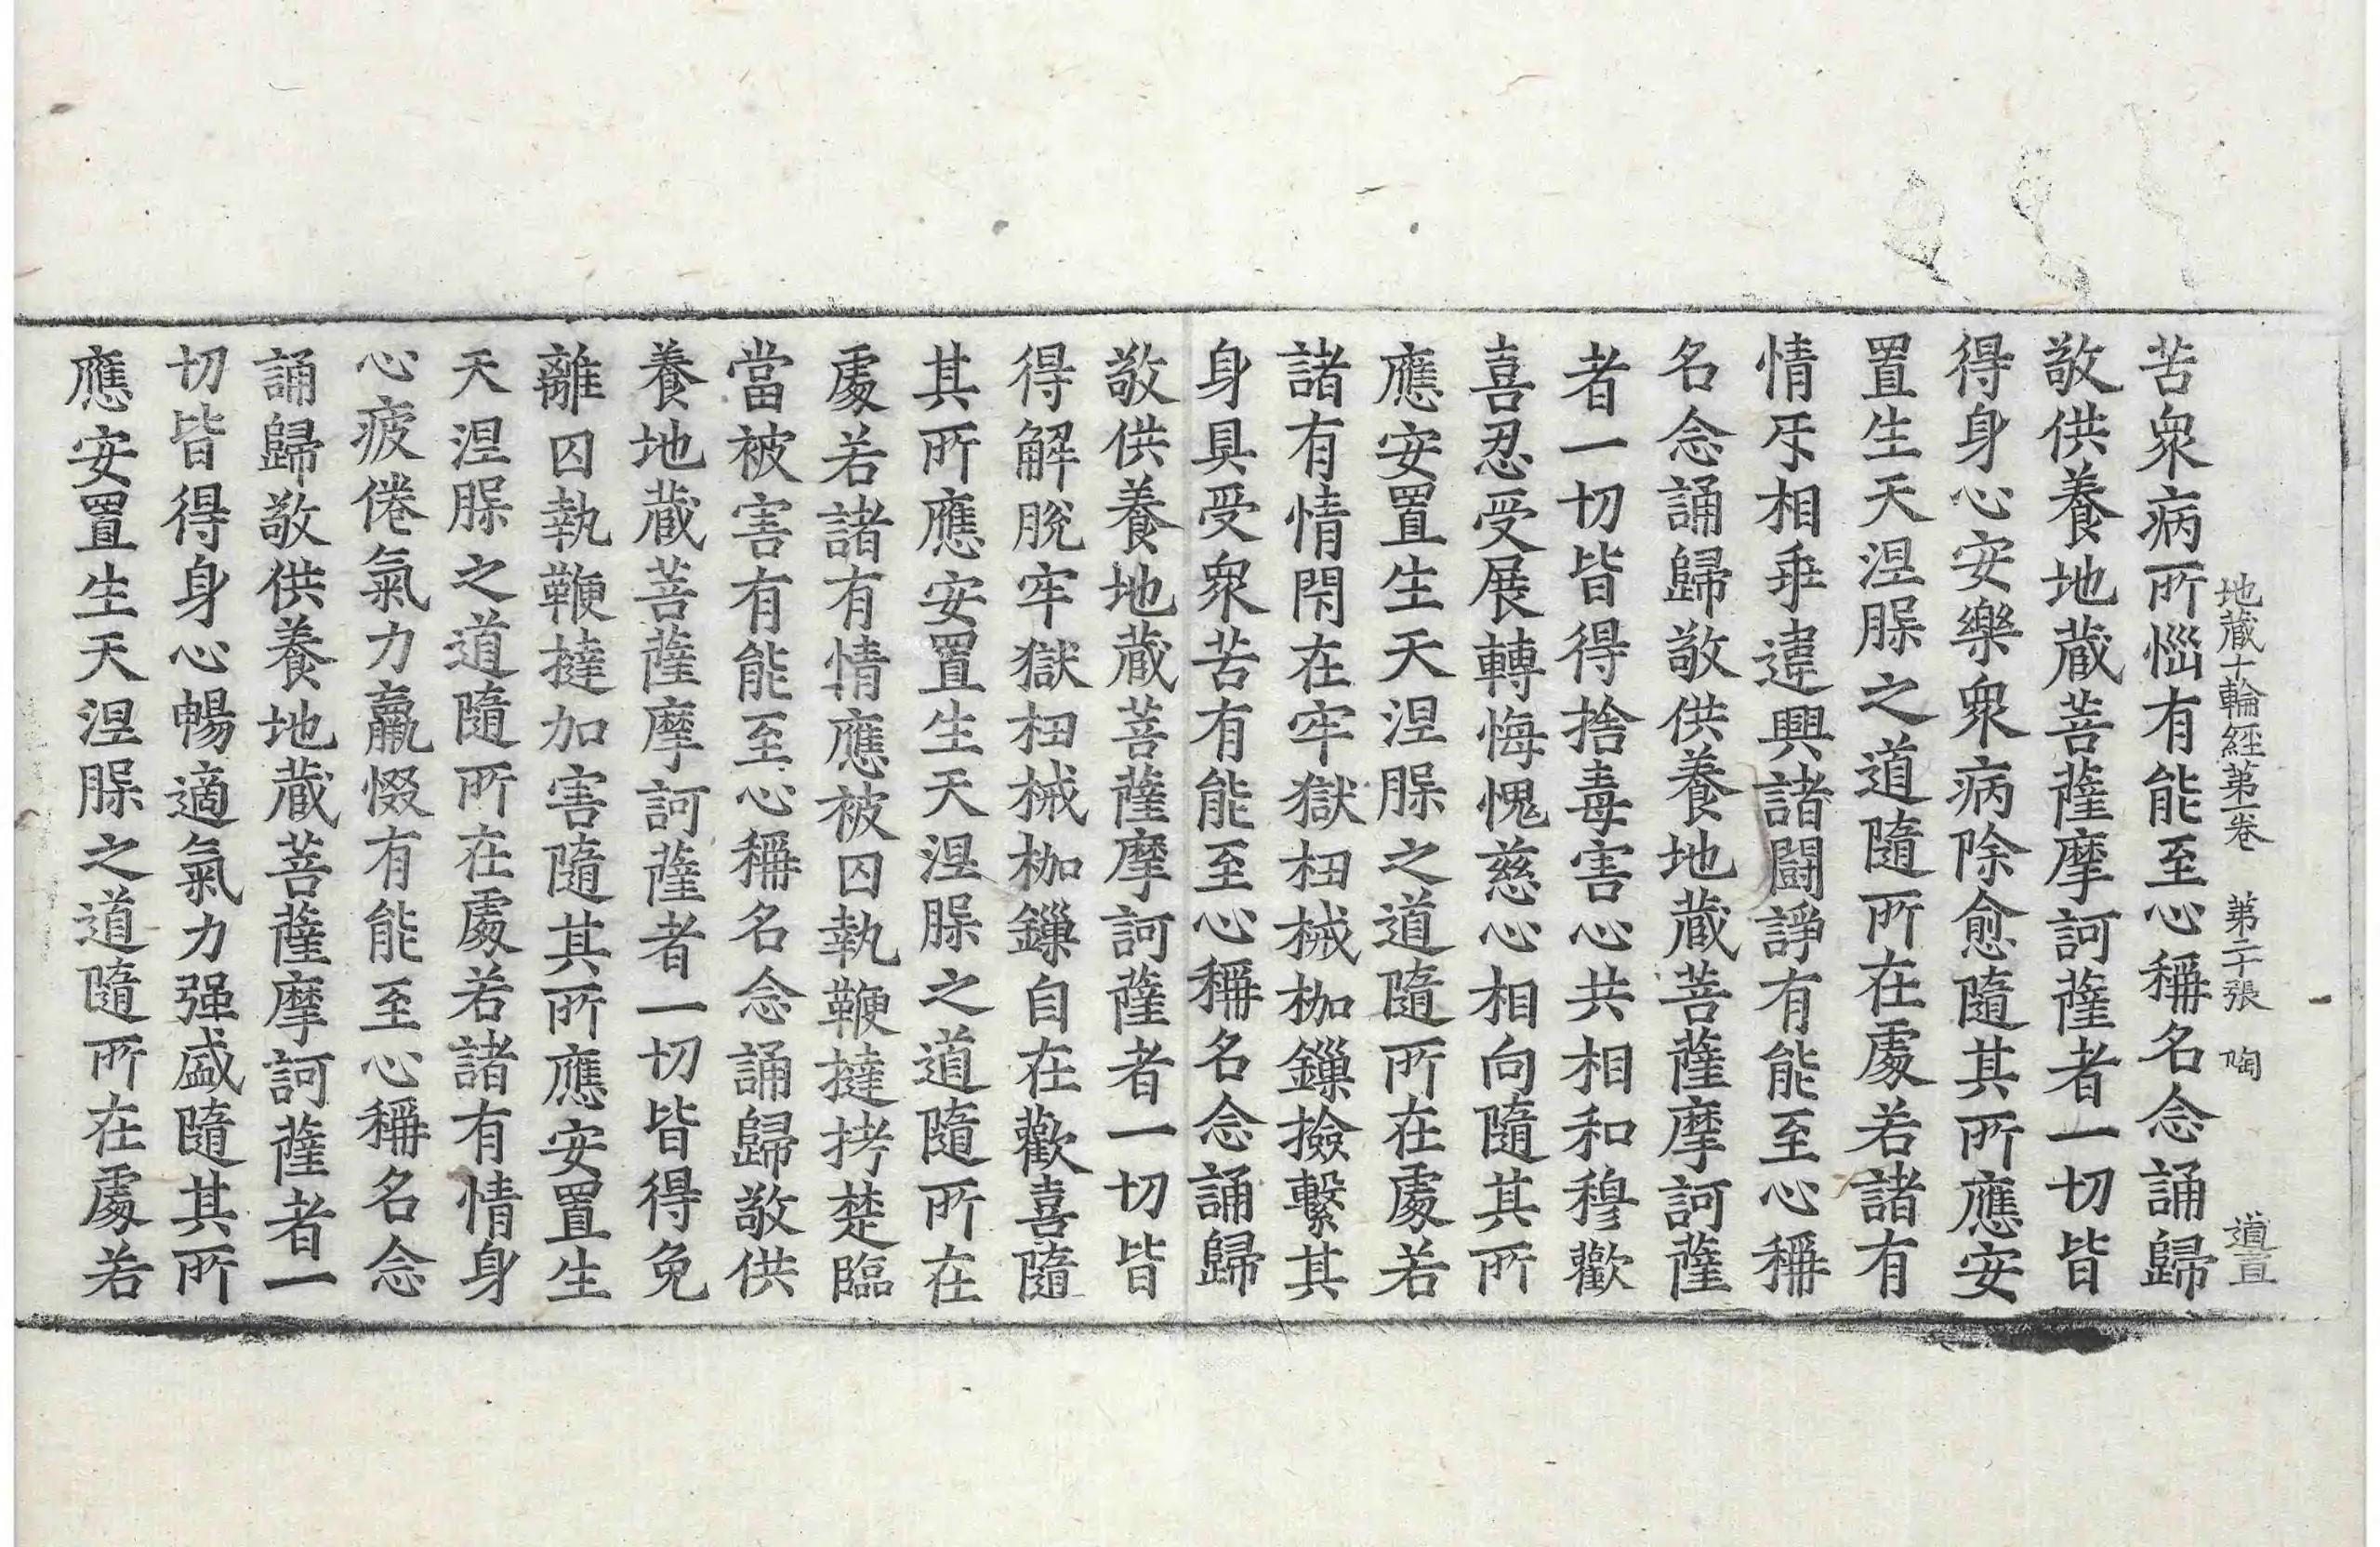 地藏十輪經第一卷 第二十張 陶 道直
苦衆病所惱有能至心稱名念誦歸
敬供養地藏菩薩摩訶薩者一切皆
得身心安樂衆病除愈隨其所應安
置生天涅槃之道隨所在處若諸有
情㸦相乖違興諸鬪諍有能至心稱
名念誦歸敬供養地藏菩薩摩訶薩
者一切皆得捨毒害心共相和穆歡
喜忍受展轉悔愧慈心相向隨其所
應安置生天涅槃之道隨所在處若
諸有情閇在牢獄杻械枷鏁撿繫其
身具受衆苦有能至心稱名念誦歸
敬供養地藏菩薩摩訶薩者一切皆
得解脫牢獄杻械枷鏁自在歡喜隨
其所應安置生天涅槃之道隨所在
處若諸有情應被囚執鞭撻拷楚臨
當被害有能至心稱名念誦歸敬供
養地藏菩薩摩訶薩者一切皆得免
離囚執鞭撻加害隨其所應安置生
天涅槃之道隨所在處若諸有情身
心疲倦氣力羸惙有能至心稱名念
誦歸敬供養地藏菩薩摩訶薩者一
切皆得身心暢適氣力强盛隨其所
應安置生天涅槃之道隨所在處若